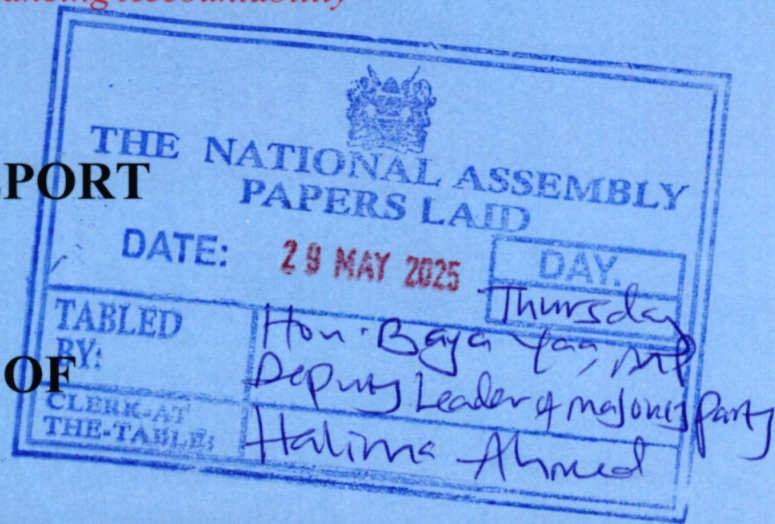 Accountability
PORT
THE NATIONAL ASSEMBLY
PAPERS LAID
DATE: 29 MAY 2025 DAY.
Thursday
TABLED BY: Hon. Baya Yaa, MP
Deputy Leader of majority party
OF
CLERK-AT THE-TABLE: Halima Ahmed